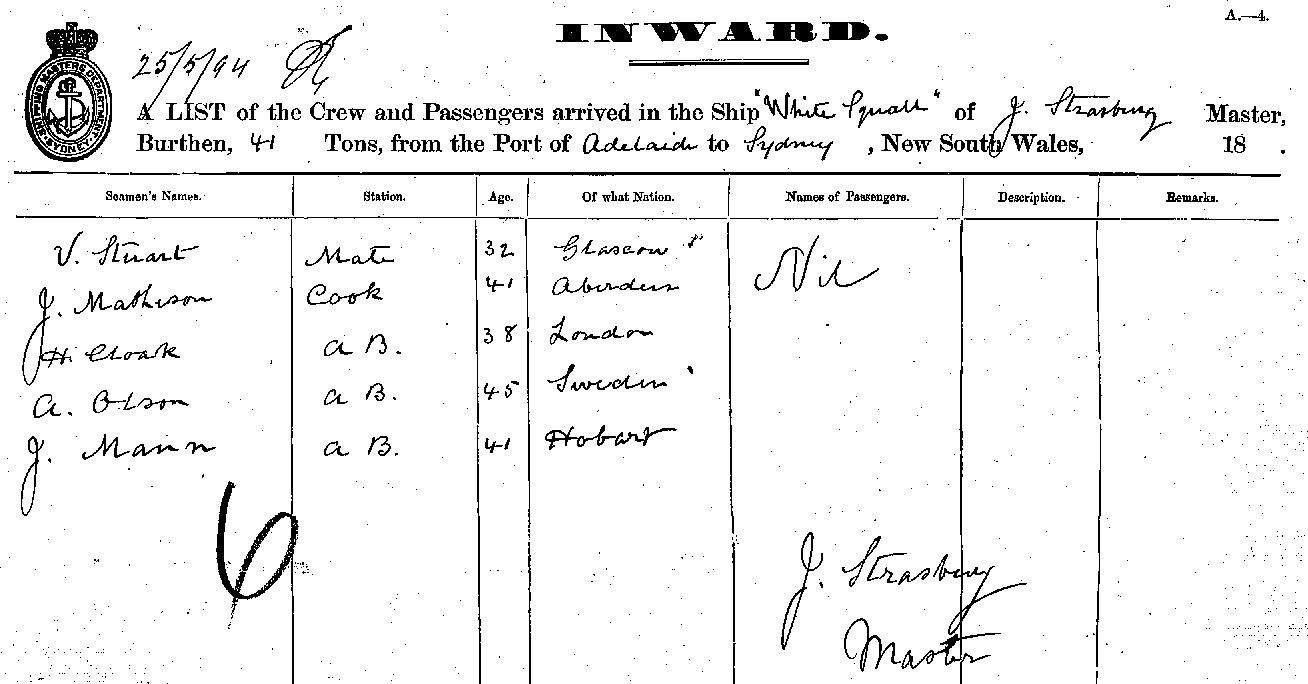 A.—4.
INWARD.
25/5/94
SHIPPING MASTERS DEPARTMENT SYDNEY
A LIST of the Crew and Passengers arrived in the Ship "White Squall" of J. Strasburg Master,
Burthen, 41 Tons, from the Port of Adelaide to Sydney, New South Wales, 18 .
Seamen's Names. Station. Age. Of what Nation. Names of Passengers. Description. Remarks.
V. Stuart Mate 32 Glascow Nil
J. Matheson Cook 41 Aberdeen
H. Cloak A B. 38 London
A. Olson A B. 45 Sweden
J. Mann A B. 41 Hobart
6
J. Strasburg
Master